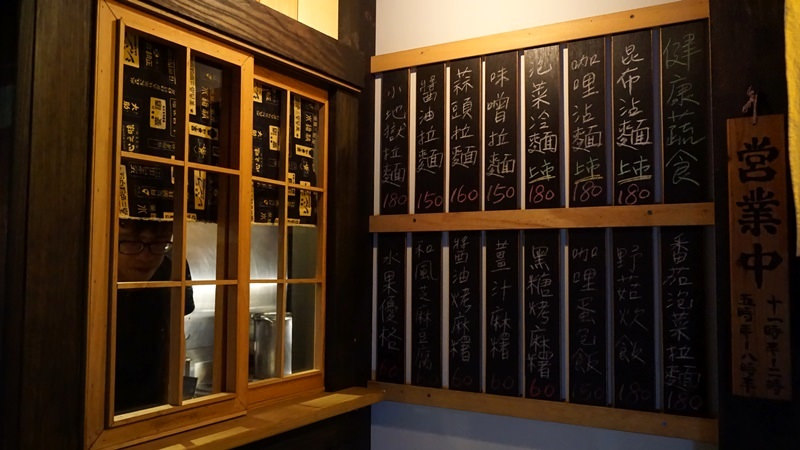 健康蔬食
昆布沾麵
180
咖哩沾麵
180
泡菜冷麵
180
味噌拉麵
150
蒜頭拉麵
160
醬油拉麵
150
小地獄拉麵
180
番茄泡菜拉麵
180
野菇炊飯
咖哩蛋包飯
黑糖烤麻糬
60
薑汁麻糬
60
醬油烤麻糬
60
和風芝麻豆腐
60
水果優格
60
営業中